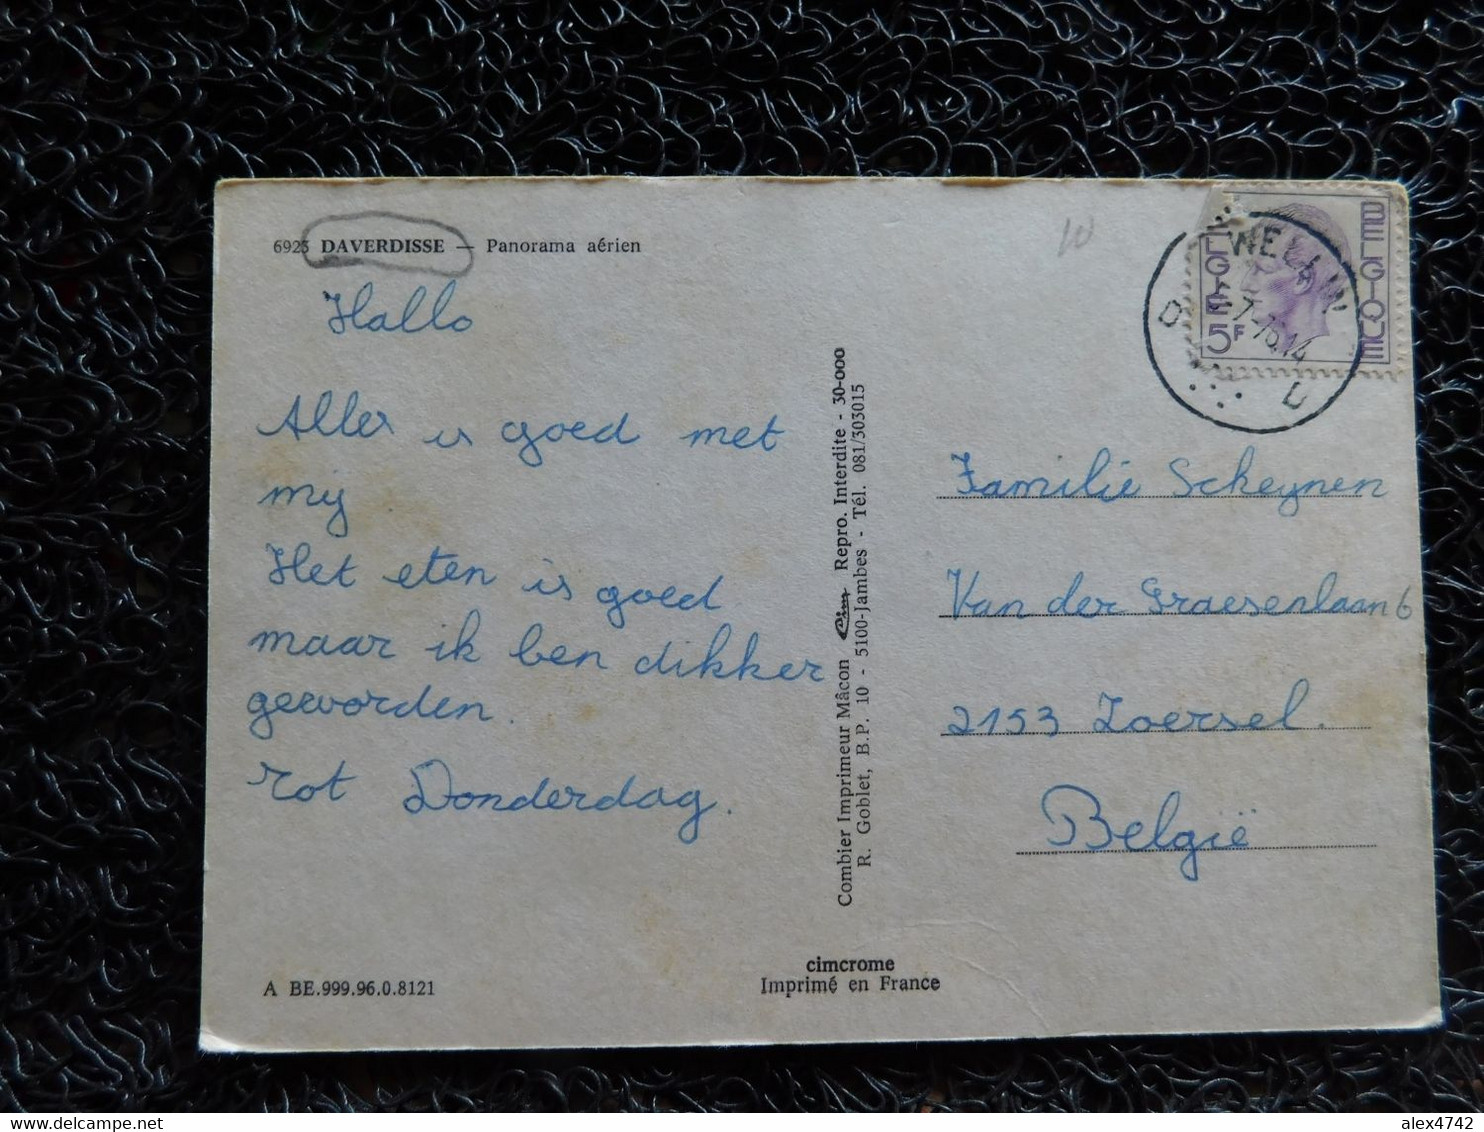 6923 DAVERDISSE — Panorama aérien
Hallo
Alles is goed met
mij
Het eten is goed
maar ik ben dikker
geworden.
tot Donderdag.
A BE.999.96.0.8121
Combier Imprimeur Mâcon Cim Repro. Interdite - 30-000
R. Goblet, B.P. 10 - 5100-Jambes - Tél. 081/303015
cimcrome
Imprimé en France
10
BELGIQUE
BELGIE
5F
WELLIN
D D
Familie Scheynen
Van der Graesenlaan 6
2153 Zoersel.
België
alex4742